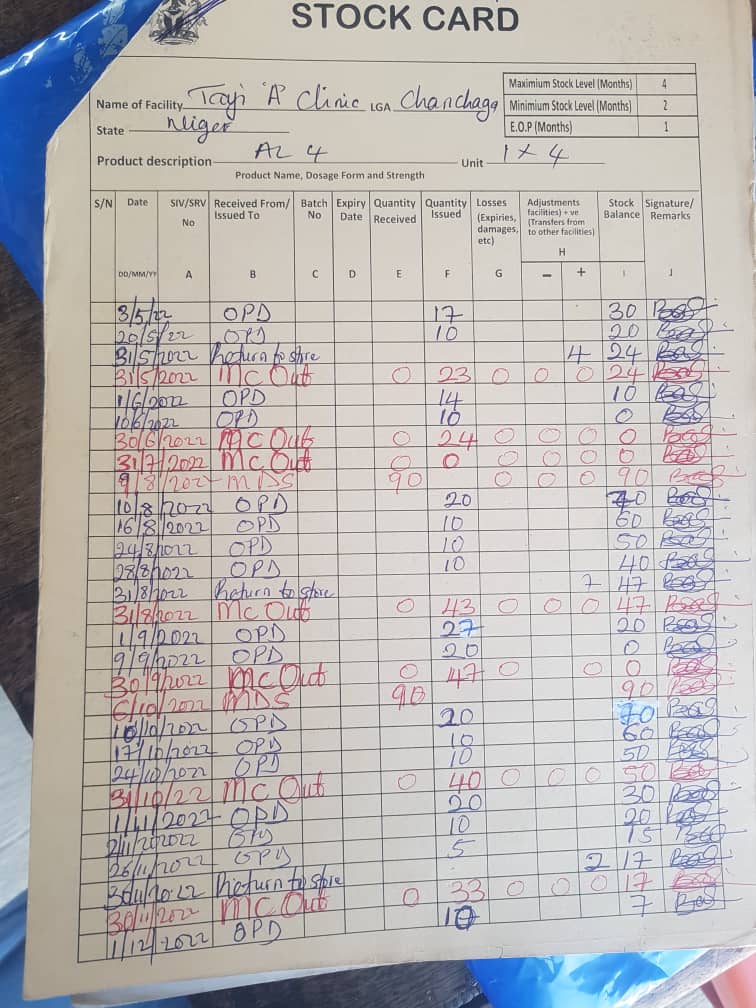 STOCK CARD
Name of Facility Tayi 'A' Clinic LGA Chanchaga
State Niger
Maximum Stock Level (Months) 4
Minimum Stock Level (Months) 2
E.O.P (Months) 1
Product description AL 4 Unit 1 x 4
Product Name, Dosage Form and Strength
S/N Date SIV/SRV No Received From/ Issued To Batch No Expiry Date Quantity Received Quantity Issued Losses (Expiries, damages, etc) Adjustments facilities) + ve (Transfers from to other facilities) Stock Balance Signature/ Remarks
H
DD/MM/YY A B C D E F G - + I J
3/5/22 OPD 17 30
20/5/22 OPD 10 20
31/5/2022 Return to store 4 24
31/5/2022 MC Out 0 23 0 0 0 24
1/6/2022 OPD 14 10
10/6/2022 OPD 10 0
30/6/2022 MC Out 0 24 0 0 0 0
31/7/2022 MC Out 0 0 0 0 0 0
9/8/202- MDS 90 0 0 0 90
10/8/2022 OPD 20 70
16/8/2022 OPD 10 60
24/8/2022 OPD 10 50
28/8/2022 OPD 10 40
31/8/2022 Return to store 7 47
31/8/2022 MC Out 0 43 0 0 0 47
1/9/2022 OPD 27 20
9/9/2022 OPD 20 0
30/9/2022 MC Out 0 47 0 0 0
6/10/2022 MDS 90 90
10/10/2022 OPD 20 70
17/10/2022 OPD 10 60
24/10/2022 OPD 10 50
31/10/22 MC Out 0 40 0 0 0 50
1/11/2022 OPD 20 30
2/11/202022 10 20
26/11/2022 OPD 5 15
30/11/2022 Return to store 2 17
30/11/2022 MC Out 0 33 0 0 0 17
1/12/2022 OPD 10 7